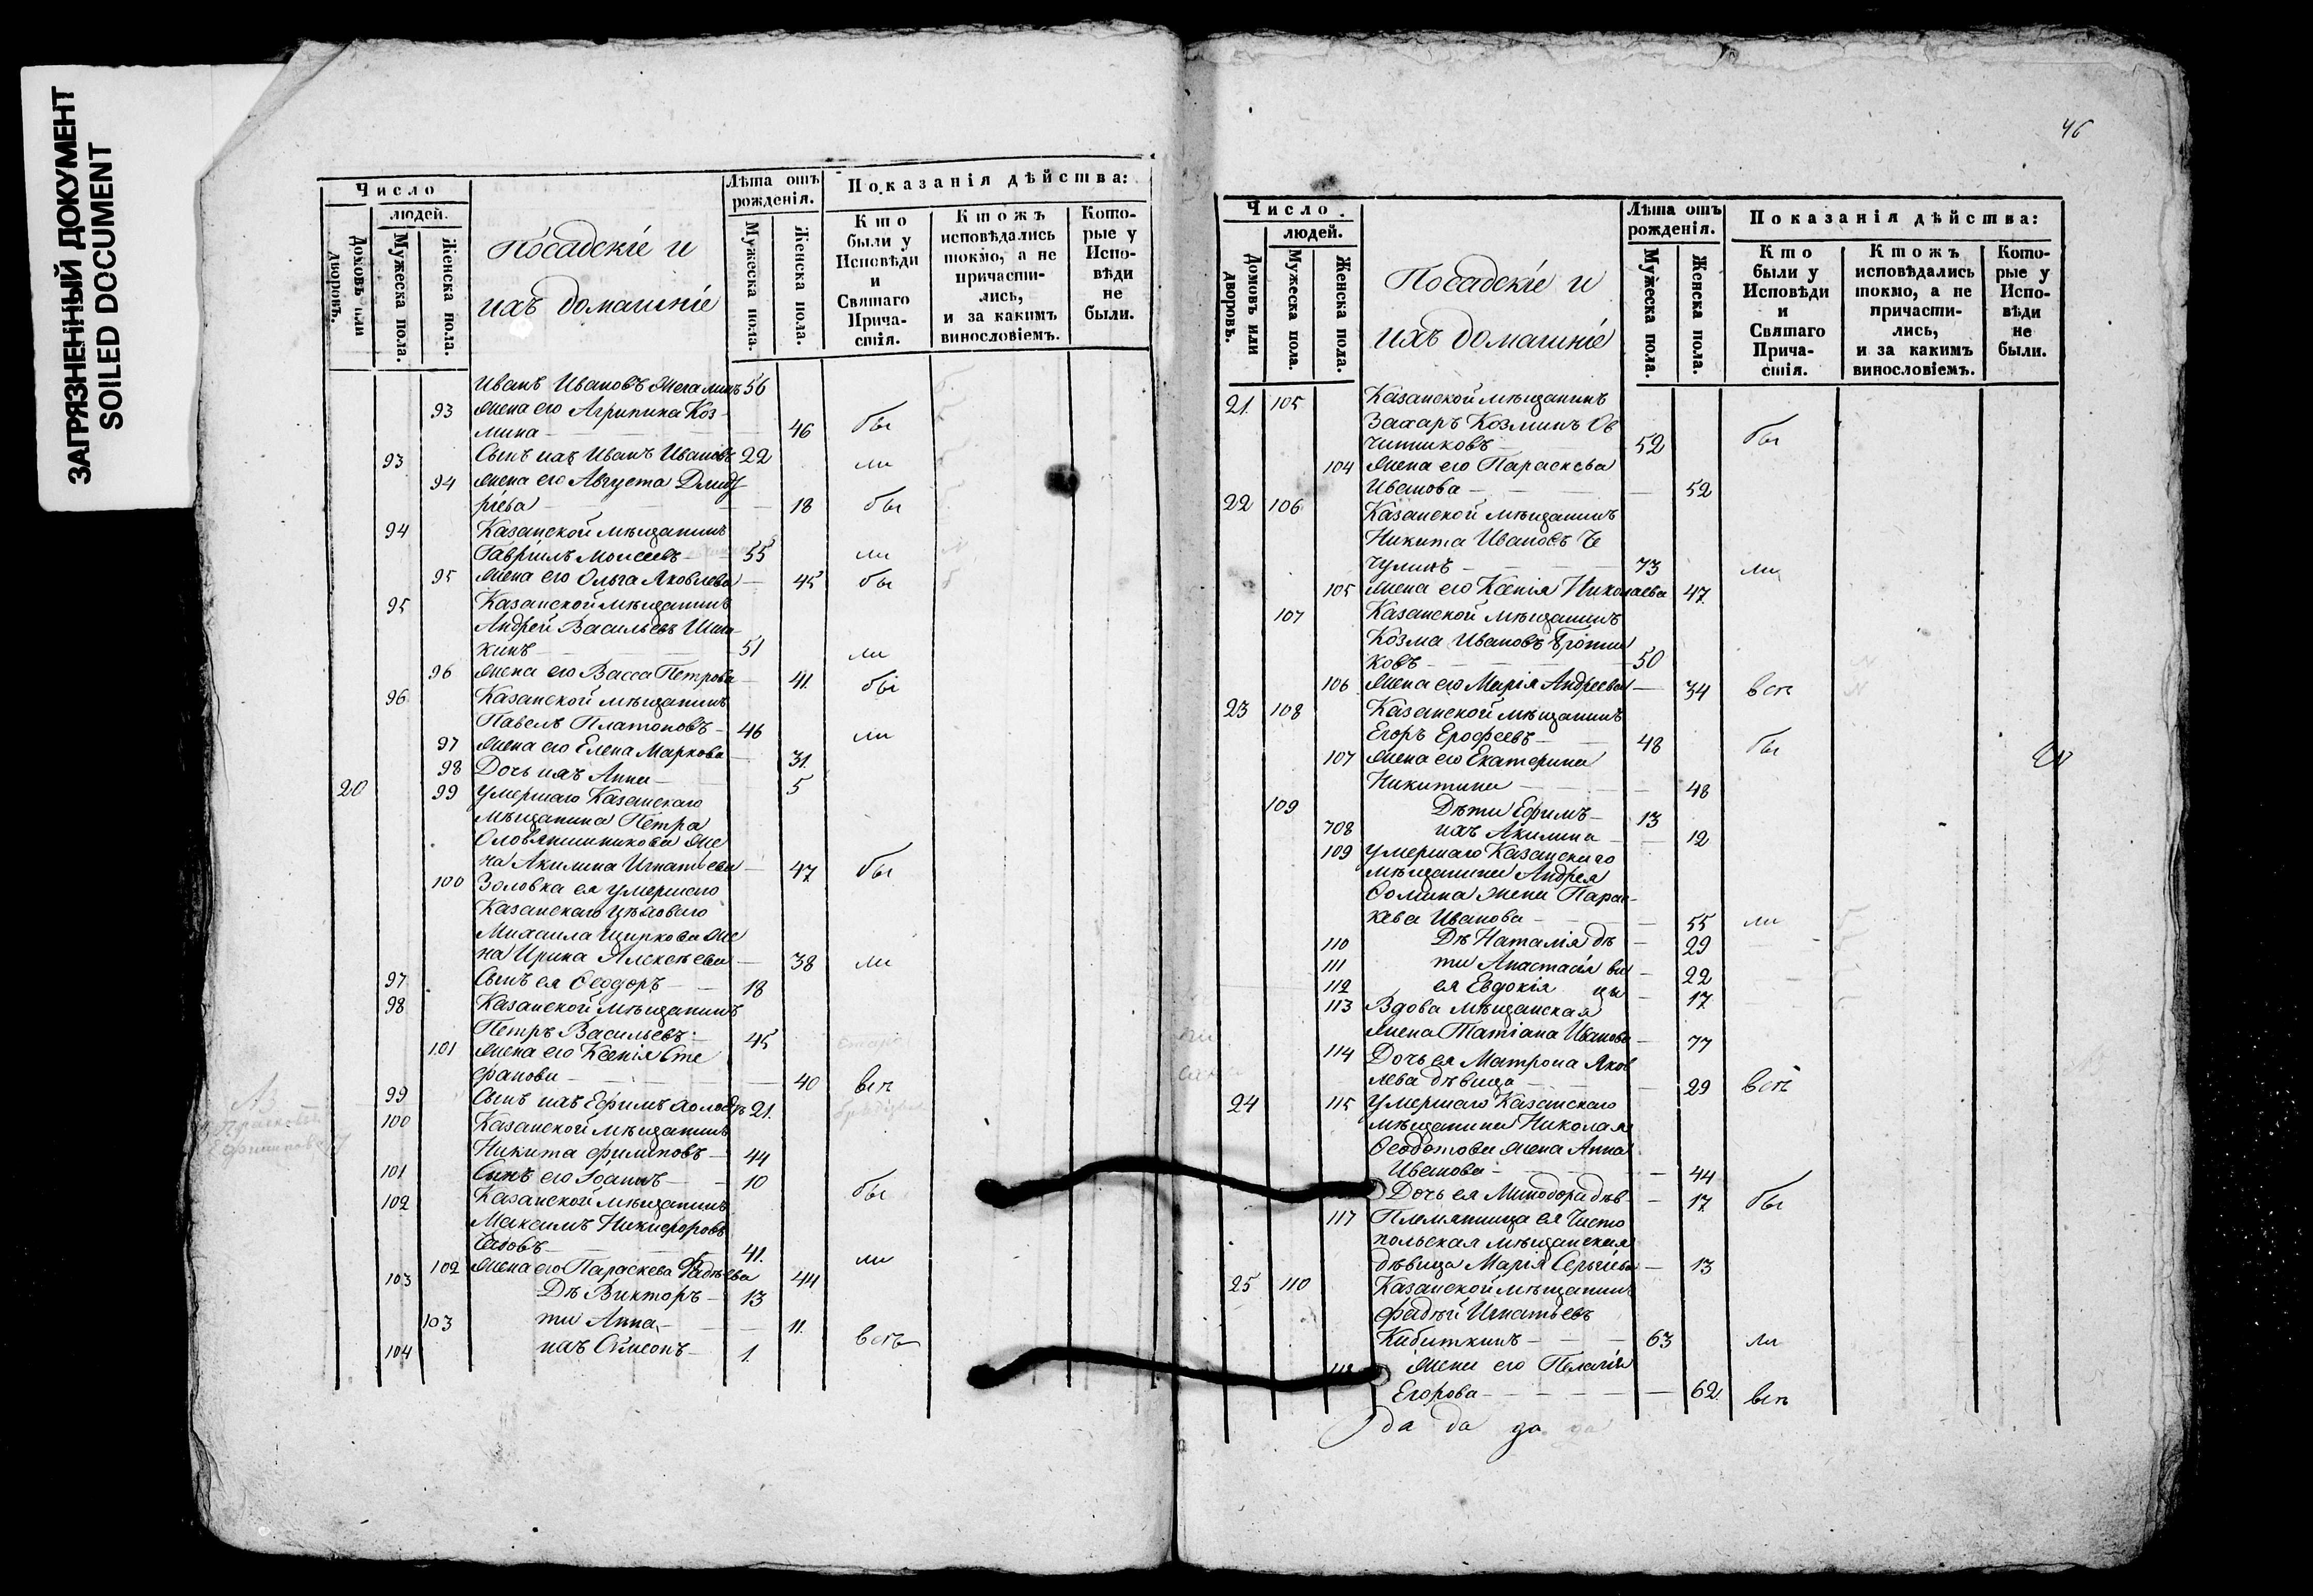 ЗАГРЯЗНЕННЫЙ ДОКУМЕНТ
SOILED DOCUMENT
Число
людей.
Домовъ или дворовъ.
Мужеска пола.
Женска пола.
Посадскіе и
ихъ домашніе
Лѣта отъ рожденія.
Мужеска пола.
Женска пола.
Показанія дѣйства:
Кто были у Исповѣди и Святаго Прича-стія.
Ктожъ исповѣдались токмо, а не причасти-лись, и за какимъ винословіемъ.
Кото-рые у Испо-вѣди не были.
Иванъ Ивановъ 56
93 жена его Агрипина Коз-
мина 46 бы
93 Сынъ ихъ Иванъ Ивановъ 22 ли
94 жена его Августа Дмит
ріева 18 бы
94 Казанской мѣщанинъ
Гавріилъ Моисеевъ 55 ли
95 жена его Ольга Яковлева 45 бы
95 Казанской мѣщанинъ
Андрей Васильевъ
кинъ 51 ли
96 жена его Васса Петрова 41 бы
96 Казанской мѣщанинъ
Павелъ Платоновъ 46 ли
97 жена его Елена Маркова 31
98 Дочь ихъ Анна 5
20 99 Умершаго Казанскаго
мѣщанина Петра
Оловянишникова же
на Акилина Игнатьева 47 бы
100 Золовка ея умершаго
Казанскаго цѣховаго
Михаила Щипкова же
на Ирина Алексѣева 38 ли
97 Сынъ ея Ѳеодоръ 18
98 Казанской мѣщанинъ
Петръ Васильевъ 45
101 жена его Ксенія Сте
фанова 40 всѣ
99 Сынъ ихъ Ефимъ холостъ 21
100 Казанской мѣщанинъ
Никита Филиповъ 44
101 Сынъ его Іоаннъ 10 бы
102 Казанской мѣщанинъ
Максимъ Никифоровъ
41 ли
102 жена его Параскева Фадѣева 44
103 Дѣ Викторъ 13
103 ти Анна 11
104 ихъ Сѵмеонъ 1 всѣ
46
Число
людей.
Домовъ или дворовъ.
Мужеска пола.
Женска пола.
Посадскіе и
ихъ домашніе
Лѣта отъ рожденія.
Мужеска пола.
Женска пола.
Показанія дѣйства:
Кто были у Исповѣди и Святаго Прича-стія.
Ктожъ исповѣдались токмо, а не причасти-лись, и за какимъ винословіемъ.
Кото-рые у Испо-вѣди не были.
21 105 Казанской мѣщанинъ
Захаръ Козминъ Ов
чинниковъ 52 бы
104 жена его Параскева
Иванова 52
22 106 Казанской мѣщанинъ
Никита Ивановъ Че
чулинъ 73 ли
105 жена его Ксенія Николаева 47
107 Казанской мѣщанинъ
Козма Ивановъ
ковъ 50
106 жена его Марія Андреева 34 всѣ
23 108 Казанской мѣщанинъ
Егоръ Ерофеевъ 48 бы
107 жена его Екатерина
Никитина 48
109 Дѣти Ефимъ 13
108 ихъ Акилина 12
109 Умершаго Казанскаго
мѣщанина Андрея
Ѳомина жена Парас-
кева Иванова 55 ли
110 Дѣ Наталія дѣ 29
111 ти Анастасія ви 22
112 ея Евдокія цы 17
113 Вдова мѣщанская
жена Татіана Иванова 77
114 Дочь ея Матрона Яков
лева дѣвица 29 всѣ
24 115 Умершаго Казанскаго
мѣщанина Николая
Ѳеодотова жена Анна
Иванова 44
Дочь ея Минодора дѣв 17 бы
117 Племянница ея Чисто
польская мѣщанская
дѣвица Марія Сергіева 13
25 110 Казанской мѣщанинъ
Фадѣй Игнатьевъ
Кибиткинъ 63 ли
118 жена его Пелагія
Егорова 62 всѣ
да да да да